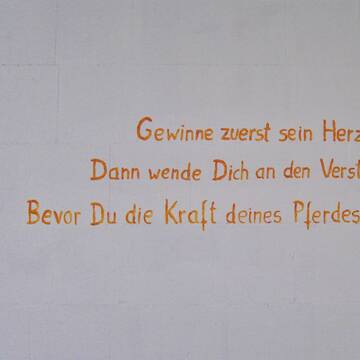 Gewinne zuerst sein Herz
Dann wende Dich an den Verst
Bevor Du die Kraft deines Pferdes